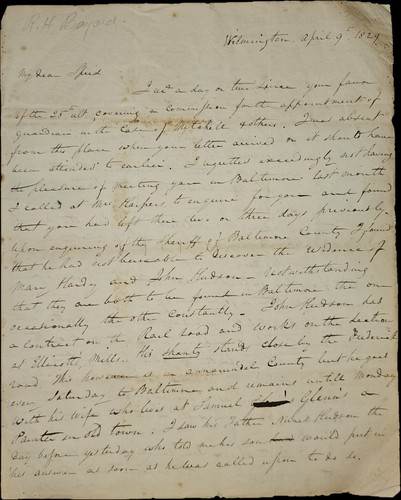 R. H. Bayard.
Wilmington, April 9th 1829
My dear Sped
I got a day or two since your favor
of the 25th ult covering a commission for the appointment of
guardian in the case of Mitchell & others. I was absent
from this place when your letter arrived or it should have
been attended to earlier. I regretted exceedingly not having
the pleasure of meeting you in Baltimore last month
I called at Mrs Harpers to enquire for you and found
that you had left there two or three days previously.
Upon enquiring of the Sheriff of Baltimore County I found
that he had not been able to discover the residence of
Mary Hardy and John Hudson - Notwithstanding
that they are both to be found in Baltimore the one
occasionally the other constantly - John Hudson has
a contract on the Rail road and works on the section
at Ellicotts Mills. His shanty stands close by the Frederick
road This however is in annarundel County but he goes
every Saturday to Baltimore and remains untill Monday
with his wife who lives at Samuel Glenn's a
Painter in Old town. I saw his Father Hudson the
day before yesterday who told me his son would put in
his answer as soon as he was called upon to do so.